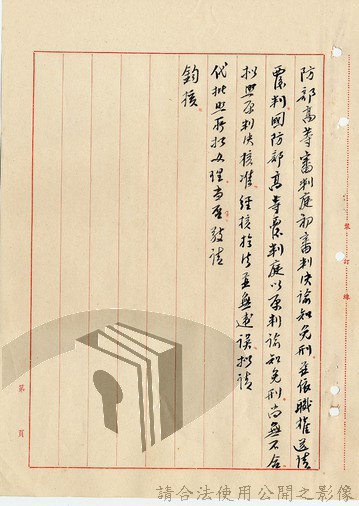 防部高等審判庭初審判決諭知免刑並依職權送請
覆判國防部高等覆判庭以原判諭知免刑尚無不合
擬照原判決核准經核於法並無違誤擬請
代批照所擬辦理當否敬請
鈞核
裝訂線
第 頁
請合法使用公開之影像